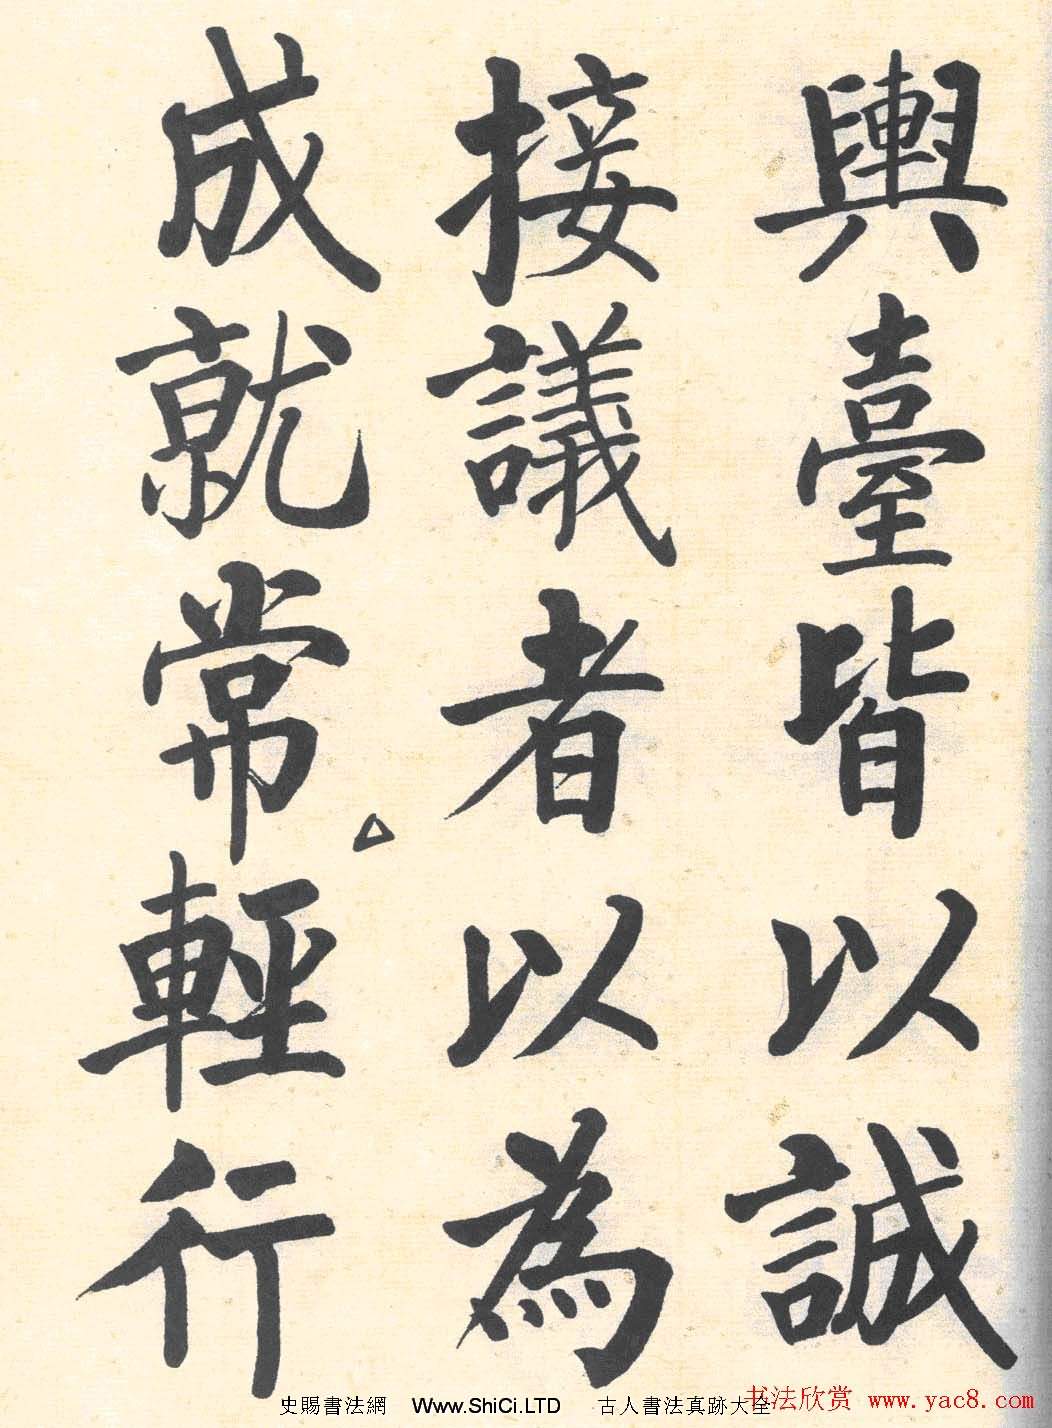 輿臺皆以誠
接議者以為
成就常輕行
史賜書法網 Www.ShiCi.LTD 古人書法真跡大全
书法欣赏 www.yac8.com